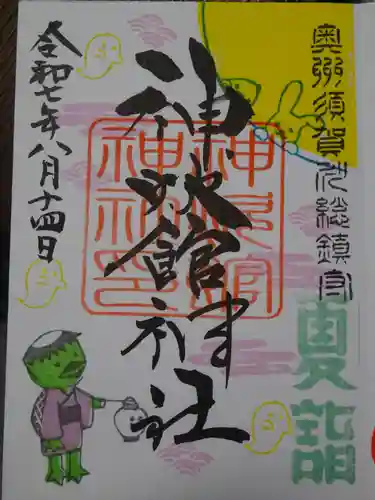 奥州須賀川総鎮守
夏詣
神炊館神社
神炊館神社印
令和七年八月十四日